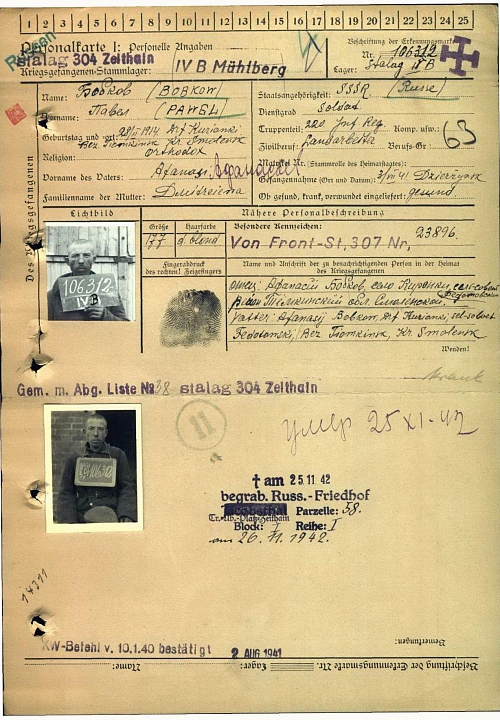 1 2 3 4 5 6 7 8 9 10 11 12 13 14 15 16 17 18 19 20 21 22 23 24 25
Personalkarte I: Personelle Angaben
Beschriftung der Erkennungsmarke
stalag 304 Zeithain
Nr. 106312
Kriegsgefangenen-Stammlager: IV B Mühlberg
Lager: Stalag IV B
Des Kriegsgefangenen
Name: Бобков (BOBKOW)
Staatsangehörigkeit: SSSR (Russe)
Vorname: Павел (PAWEL)
Dienstgrad: Soldat
Truppenteil: 220 Inf Reg Komp. usw.:
Geburtstag und -ort: 1914 Krf Kurianki
Zivilberuf: Landarbeiter Berufs-Gr.:
63
Bez Tiomkinsk Kr Smolensk
Religion: Orthodox
Matrikel Nr. (Stammrolle des Heimatstaates):
Vorname des Vaters: Afanasi
Gefangennahme (Ort und Datum):
Familienname der Mutter:
Ob gesund, krank, verwundet eingeliefert: gesund
Lichtbild
Nähere Personalbeschreibung
Größe Haarfarbe Besondere Kennzeichen:
177 d. blond
23896.
Von Front-St,307 Nr,
Fingerabdruck
des rechten! Zeigefingers
Name und Anschrift der zu benachrichtigenden Person in der Heimat
des Kriegsgefangenen
106312
IV B
отец: Афанасий Бобков, село Курянки, сельсовет
Федотовский
обл. Смоленской.
Vatter: Afanasij Bobkow, Krf Kurianki, sel-soviet
Fedotowski, Bez Tiomkinsk, Kr Smolensk
Wenden!
Gem. m. Abg. Liste № 38 stalag 304 Zeithain
11
106312
умер 25 XI-42
† am 25 11 42
begrab. Russ.-Friedhof
Jacobsthal Parzelle: 58.
Tr.-Üb.-Platz Zeithain
Block: Reihe: I
am 26. 11. 1942.
KW-Befehl v. 10.1.40 bestätigt
2 AUG 1941
Bemerkungen:
Beschriftung der Erkennungsmarke Nr. Lager: Name: